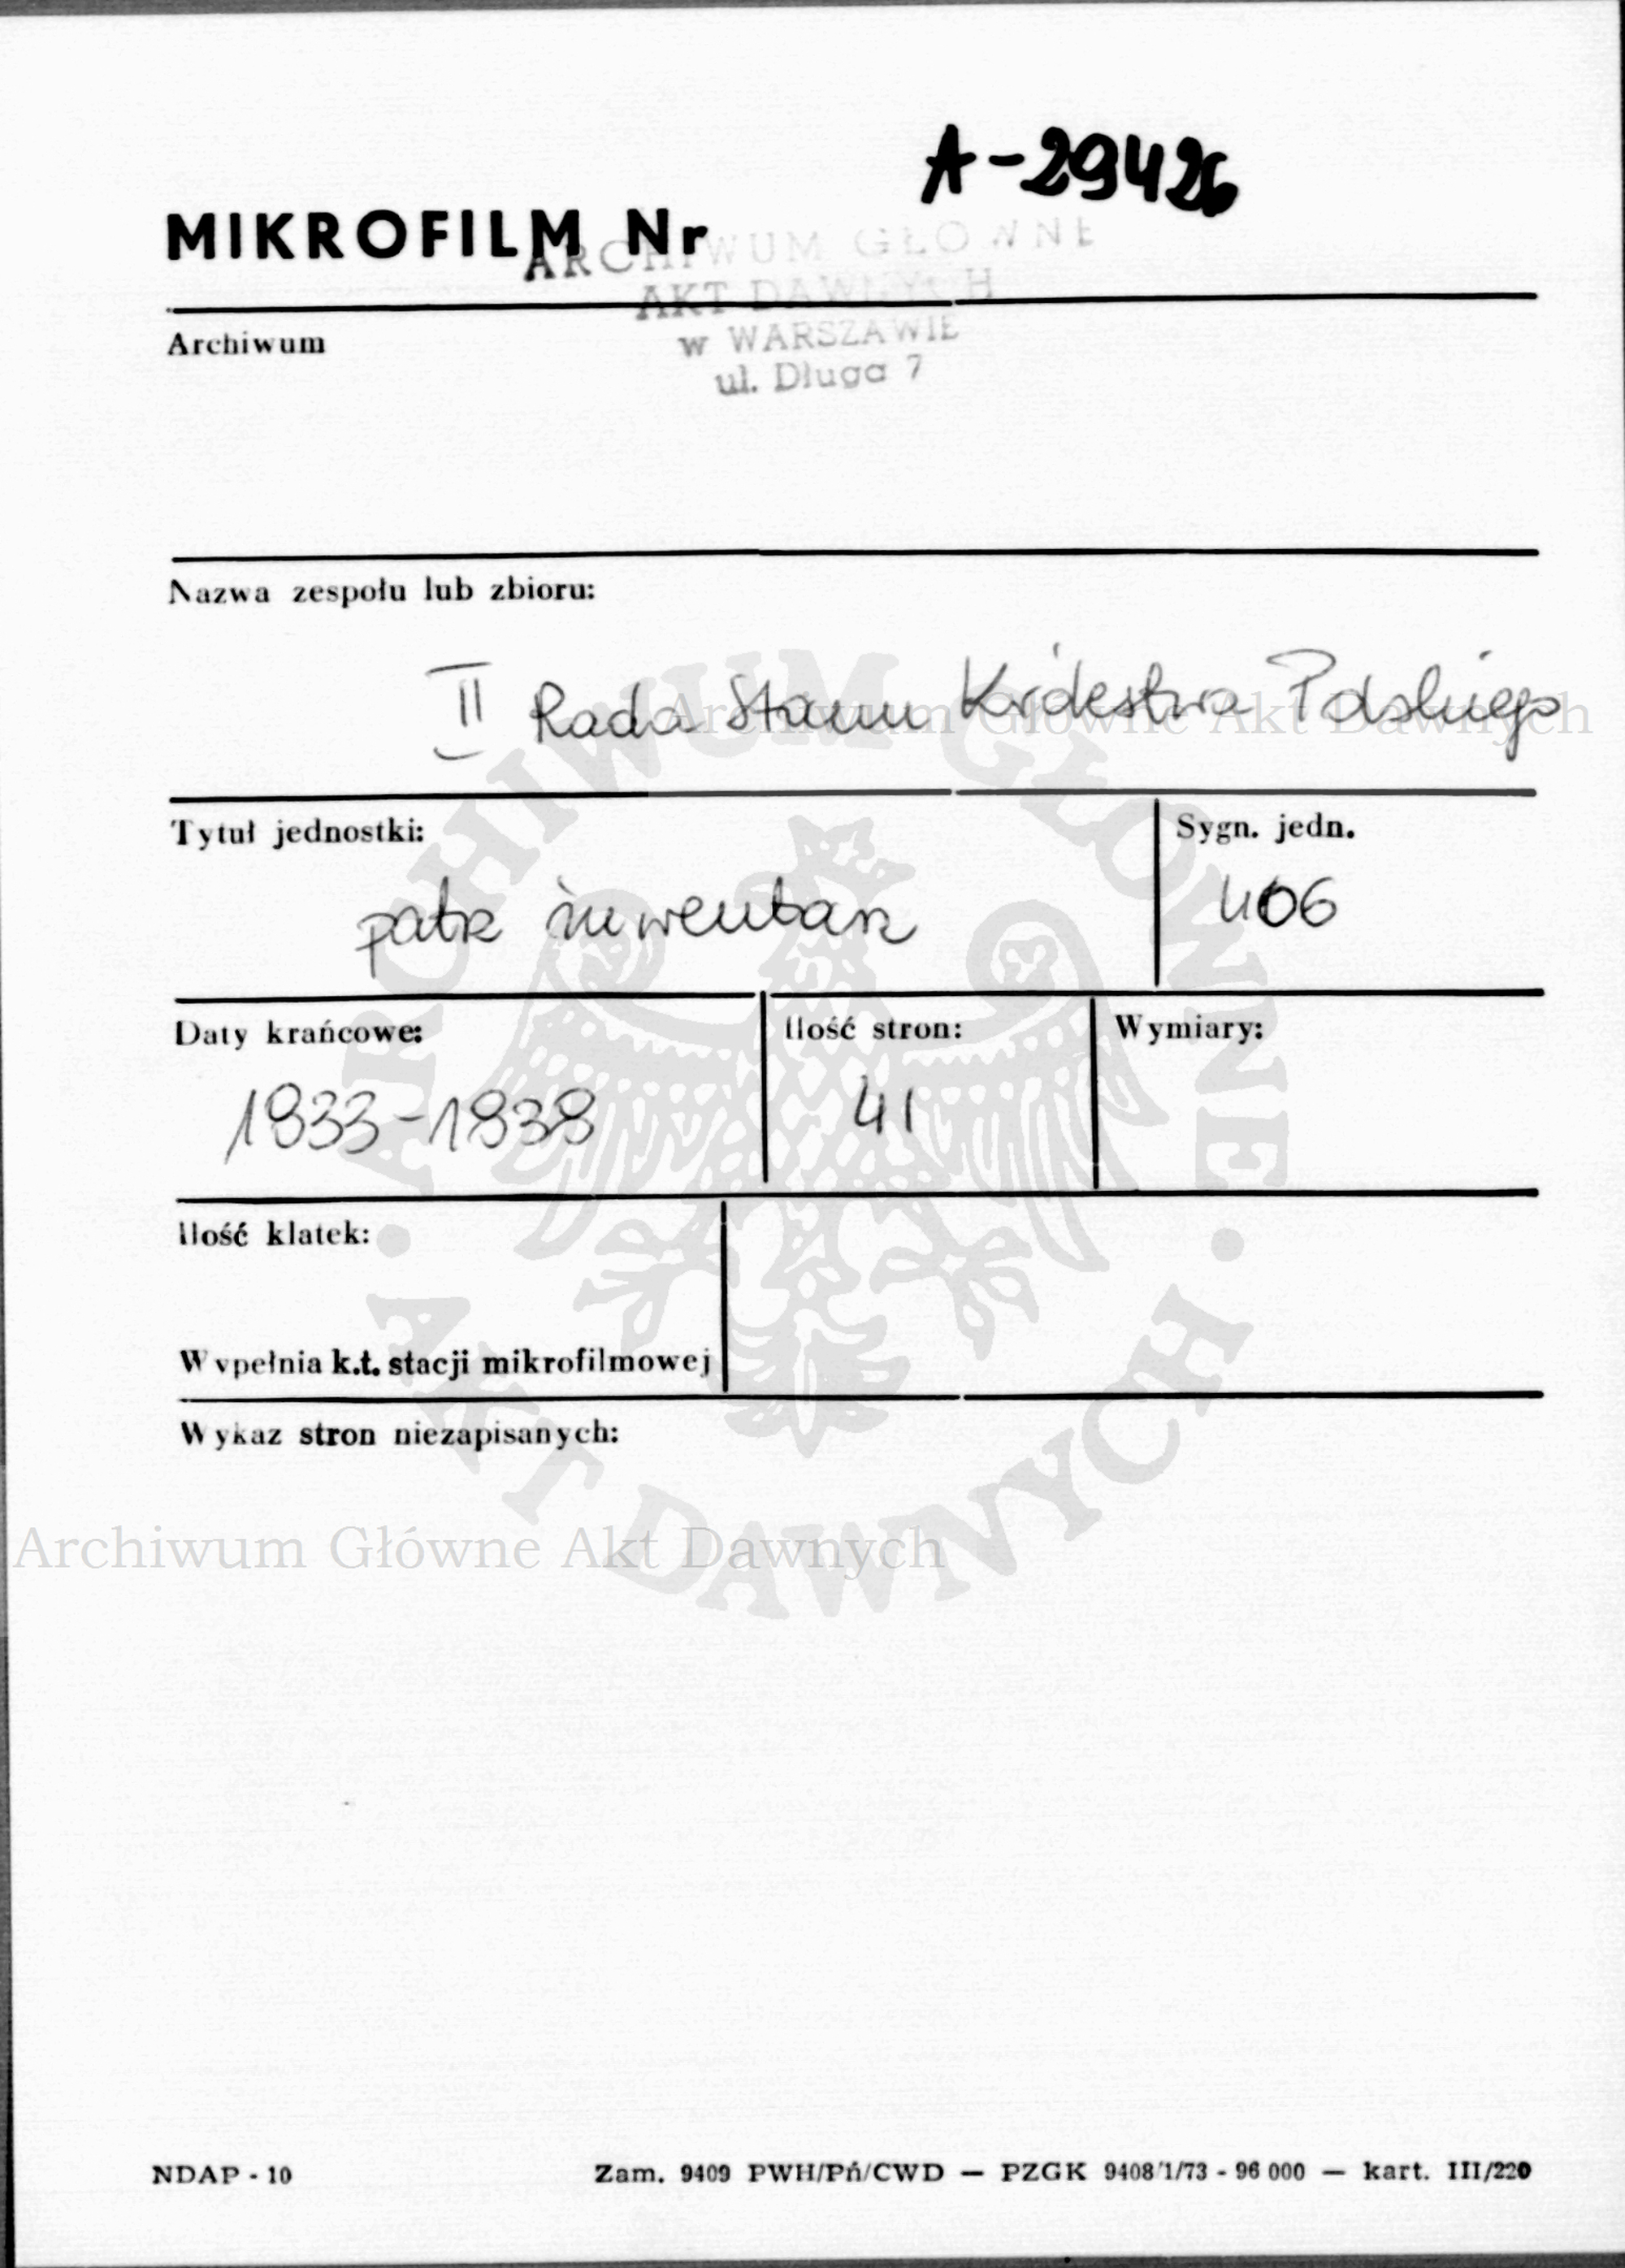 A-29426
MIKROFILM Nr
ARCHIWUM GŁÓWNE
AKT DAWNYCH
w WARSZAWIE
ul. Długa 7
Archiwum
Nazwa zespołu lub zbioru:
II Rada Stanu Królestwa Polskiego
Archiwum Główne Akt Dawnych
Tytuł jednostki:
Sygn. jedn.
patrz inwentarz
406
Daty krańcowe:
Ilość stron:
Wymiary:
1833-1838
41
Ilość klatek:
Wypełnia k.t. stacji mikrofilmowej
Wykaz stron niezapisanych:
Archiwum Główne Akt Dawnych
ARCHIWUM GŁÓWNE · AKT DAWNYCH ·
NDAP - 10
Zam. 9409 PWH/Pń/CWD — PZGK 9408/1/73 - 96 000 — kart. III/220